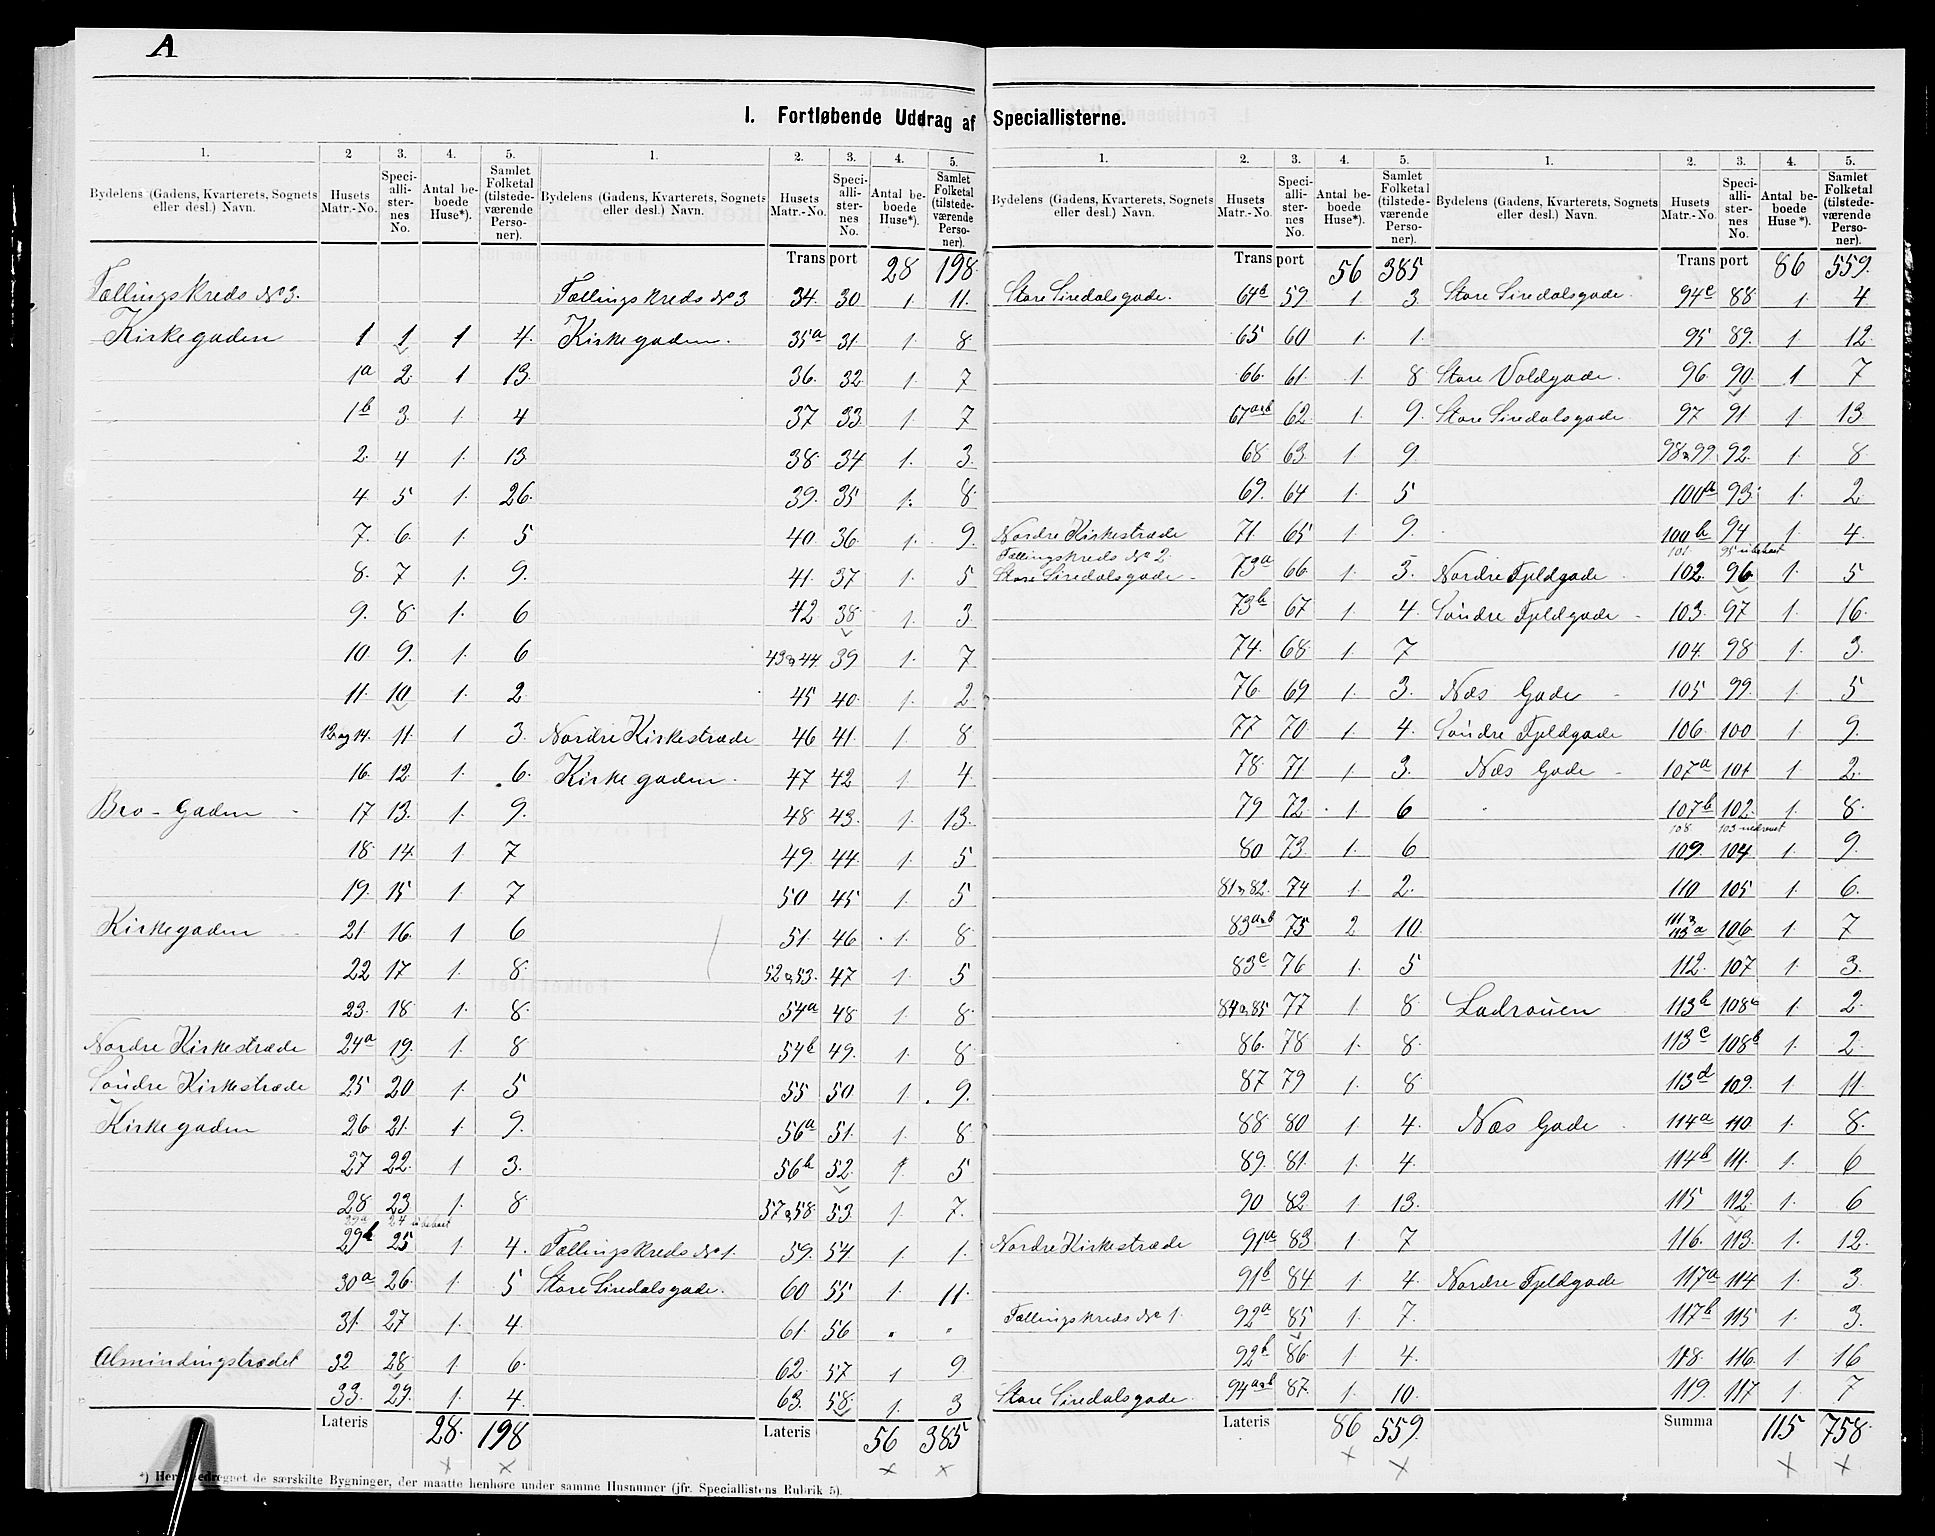 A
I. Fortløbende Uddrag af Speciallisterne.
1. 2 3. 4. 5. 1. 2. 3. 4. 5.
Bydelens (Gadens, Kvarterets, Sognets eller desl.) Navn. Husets Matr.-No. Speciallisternes No. Antal beboede Huse*). Samlet Folketal (tilstedeværende Personer). Bydelens (Gadens, Kvarterets, Sognets eller desl.) Navn. Husets Matr.-No. Speciallisternes No. Antal beboede Huse*). Samlet Folketal (tilstedeværende Personer).
Transport 28 198.
Tællingskreds No 3. Tællingskreds No 3 34. 30 1. 11.
Kirkegaden 1 1 1 4. Kirkegaden. 35a 31 1. 8
1a 2. 1 13. 36. 32 1. 7
1b 3. 1. 4 37 33. 1. 7
2. 4 1. 13 38. 34 1. 3.
4. 5 1. 26. 39. 35 1. 8.
7. 6. 1. 5 40. 36. 1. 9.
8. 7 1. 9. 41. 37 1. 5
9. 8. 1. 6 42 38. 1. 3.
10. 9. 1. 6 43 & 44. 39 1. 7
11. 10 1. 2. 45 40. 1. 2.
12 og 14. 11. 1 3. Nordre Kirkestræde 46 41. 1. 8
16. 12. 1. 6. Kirkegaden. 47 42 1 4.
Bro-Gaden 17 13. 1. 9. 48 43. 1. 13.
18. 14. 1. 7 49. 44 1. 5
19. 15 1. 7 50 45 1. 5
Kirkegaden 21. 16. 1 6 51. 46 1. 8
22 17 1. 8. 52 & 53. 47 1. 5
23. 18 1. 8. 54a 48 1. 8.
Nordre Kirkestræde 24a 19. 1. 8 54b 49. 1. 8
Söndre Kirkestræde 25 20 1. 5 55 50. 1. 9.
Kirkegaden 26 21. 1. 9. 56a 51. 1. 8
27 22. 1 3. 56b 52. 1. 5
28 23 1. 8 57 & 58. 53. 1. 7.
29a 24 ubeboet
29b 25 1. 4. Tællingskreds No 1. 59. 54 1. 1.
30a 26. 1. 5 Store Siredalsgade. 60 55 1. 11.
31. 27 1. 4. 61. 56 " "
Almindingstrædet 32 28 1 6. 62. 57 1 9
33. 29. 1. 4. 63. 58. 1. 3
Lateris 28. 198 Lateris 56 385
*) Her medregnet de særskilte Bygninger, der maatte henhøre under samme Husnumer (jfr. Speciallistens Rubrik 5).
1. 2. 3. 4. 5. 1. 2. 3. 4. 5.
Bydelens (Gadens, Kvarterets, Sognets eller desl.) Navn. Husets Matr.-No. Speciallisternes No. Antal beboede Huse*). Samlet Folketal (tilstedeværende Personer). Bydelens (Gadens, Kvarterets, Sognets eller desl.) Navn. Husets Matr.-No. Speciallisternes No. Antal beboede Huse*). Samlet Folketal (tilstedeværende Personer).
Transport 56 385 Transport 86 559.
Store Siredalsgade. 64b 59. 1. 3. Store Siredalsgade. 94c 88 1. 4
65 60 1. 1. 95 89. 1. 12.
66. 61. 1. 8 Store Voldgade. 96 90. 1 7
67a&b 62. 1. 9. Store Siredalsgade. 97 91. 1 13
68 63. 1 9 98 & 99. 92. 1. 8
69. 64 1. 5 100a 93. 1. 2.
Nordre Kirkestræde 71. 65 1. 9. 100b 94 1. 4.
Tællingskreds No 2. 101. 95 ubeboet
Store Siredalsgade 73a 66. 1. 3. Nordre Fjeldgade 102. 96. 1. 5
73b 67 1. 4. Söndre Fjeldgade 103. 97 1. 16.
74. 68. 1. 7 104. 98 1. 3.
76. 69 1. 3. Næs Gade 105 99. 1. 5
77 70. 1. 4. Söndre Fjeldgade 106. 100 1. 9.
78. 71 1 3. Næs Gade 107a 101 1 2.
79 72. 1 6 107b 102. 1. 8.
108. 103 nedrevet
80 73. 1. 6 109. 104 1. 9.
81 & 82. 74 1. 2. 110 105 1. 6.
83a&b 75 2 10. 111 & 113a 106. 1. 7
83c 76 1. 5 112. 107 1. 3.
84 & 85 77 1. 8 Ladrouen 113b 108a 1. 2.
86. 78 1. 8. 113c 108b 1. 2.
87 79 1. 8 113d 109. 1. 11.
88. 80 1. 4. Næs Gade 114a 110 1. 8.
89. 81. 1. 4. 114b 111. 1. 6
90 82. 1. 13. 115 112. 1. 6
Nordre Kirkestræde 91a 83 1. 7 116. 113. 1. 12.
91b 84 1. 4. Nordre Fjeldgade 117a 114 1. 3.
Tællingskreds No 1. 92a 85 1. 7. 117b 115 1. 3.
92b 86. 1. 4. 118. 116. 1. 16
Store Siredalsgade. 94a&b 87. 1. 10. 119. 117 1. 7
Lateris 86 559. Summa 115 758.